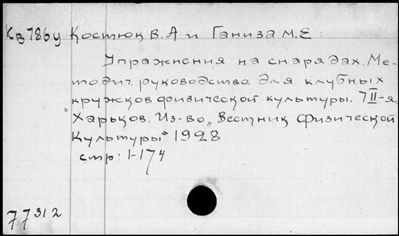 Кв 786у Костюк В.А и Ганиза М.Е
Упражнения на снарядах. Ме-
тодич. руководство для клубных
кружков физической культуры. 7 II-я
Харьков. Из-во „Вестник физической
культуры" 1928
стр: 1-174
77312